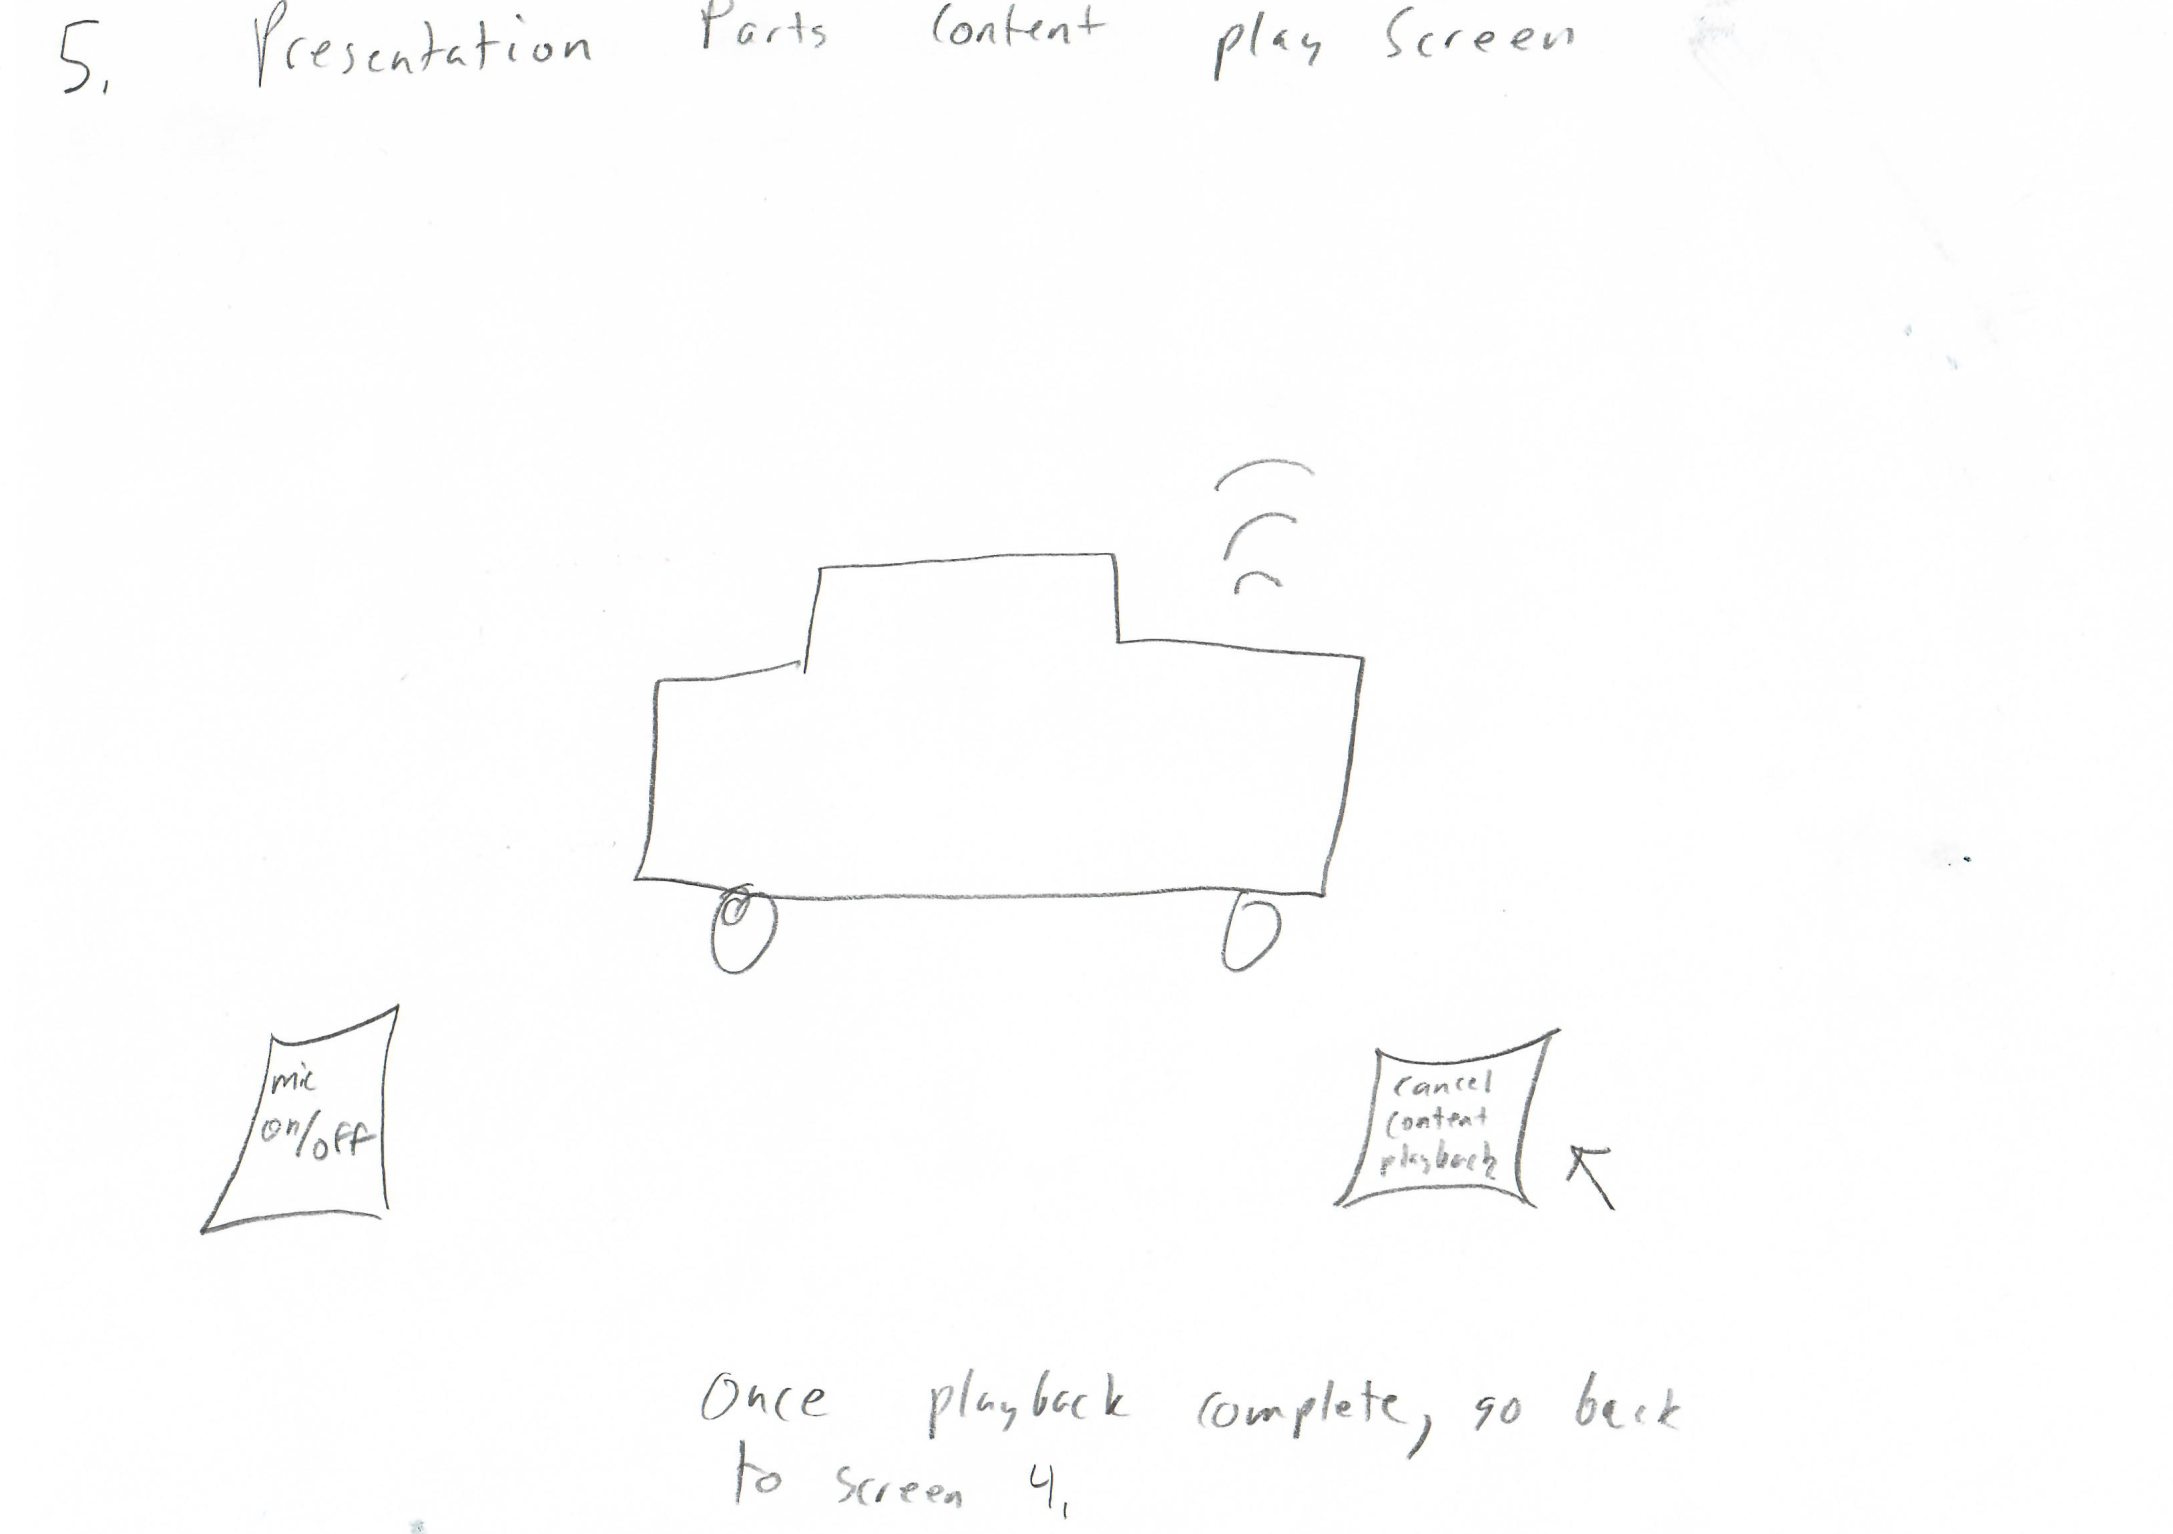 5. Presentation Parts Content play Screen
mic
on/off
cancel
content
playback
Once playback complete, go back
to screen 4.